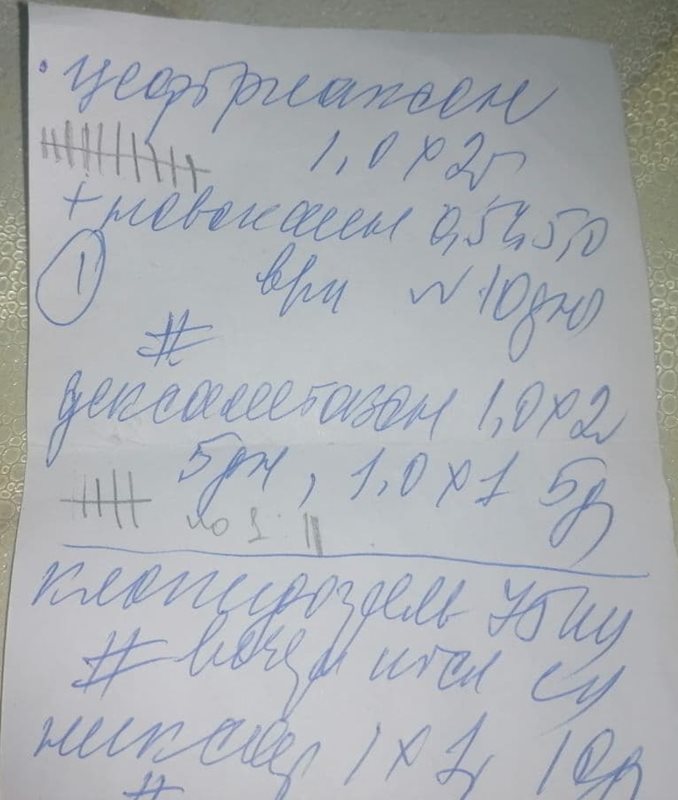 • цефтриаксон
1,0 х 2р
+ новокаин 0,5% 5,0
1 в/м № 10дн
#
дексаметазон 1,0 х 2
5дн, 1,0 х 1 5д
по 1 ||
клопидогрель 75мг
#
1 х 1р 10д
#